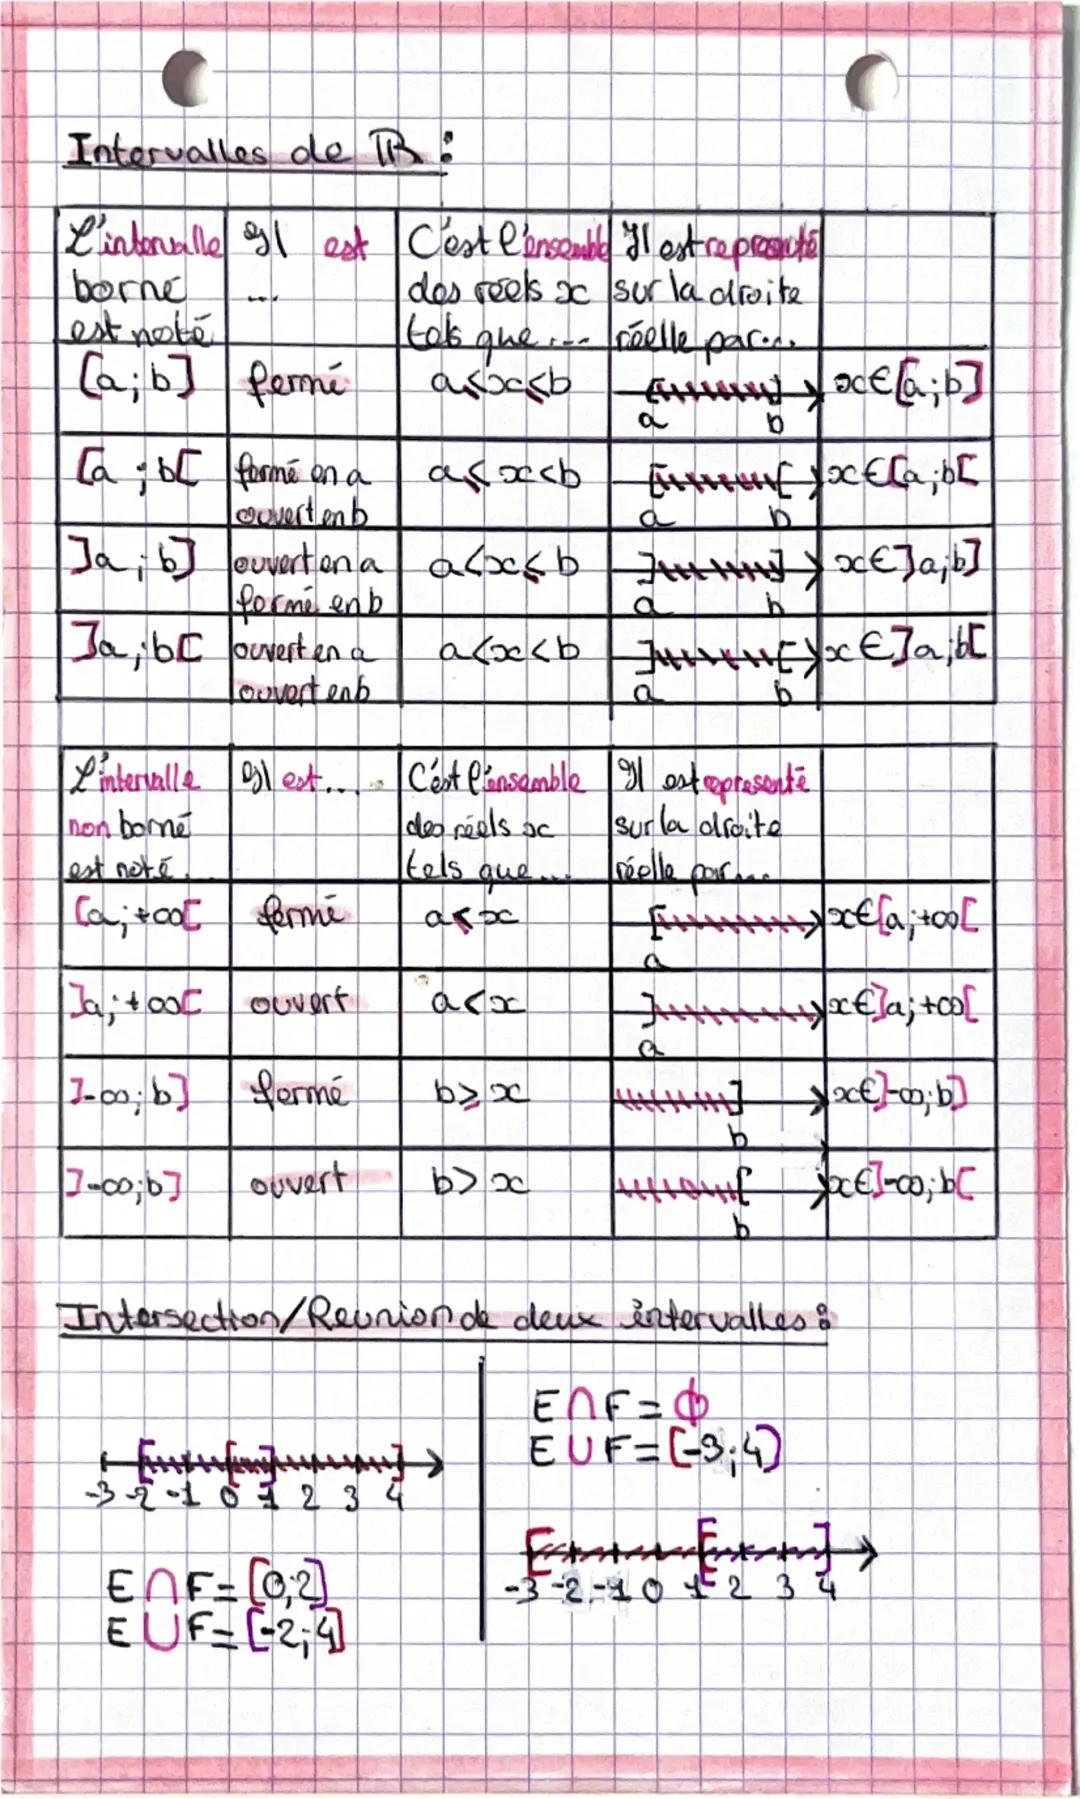 Intervalles de ℝ :
L'intervalle borné est noté | Il est ... | C'est l'ensemble des réels x tels que ... | Il est representé sur la droite réelle par...
[a ; b] | fermé | a ≤ x ≤ b | a b | x ∈ [a ; b]
[a ; b[ | fermé en a ouvert en b | a ≤ x < b | a b | x ∈ [a ; b[
]a ; b] | ouvert en a fermé en b | a < x ≤ b | a b | x ∈ ]a ; b]
]a ; b[ | ouvert en a ouvert en b | a < x < b | a b | x ∈ ]a ; b[
L'intervalle non borné est noté ... | Il est ... | C'est l'ensemble des réels x tels que ... | Il est representé sur la droite réelle par...
[a ; +∞[ | fermé | a ≤ x | a | x ∈ [a ; +∞[
]a ; +∞[ | ouvert | a < x | a | x ∈ ]a ; +∞[
]-∞ ; b] | fermé | b ≥ x | b | x ∈ ]-∞ ; b]
]-∞ ; b] | ouvert | b > x | b | x ∈ ]-∞ ; b[
Intersection/Reunion de deux intervalles :
-3 -2 -1 0 1 2 3 4
E ∩ F = [0 ; 2]
E ∪ F = [-2 ; 4]
E ∩ F = ϕ
E ∪ F = [-3 ; 4]
-3 -2 -1 0 1 2 3 4